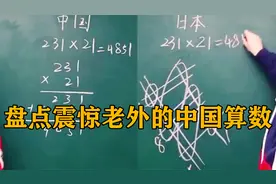 中国
231×21=4851
231
× 21
231
日本
231×21=48
盘点震惊老外的中国算数
8